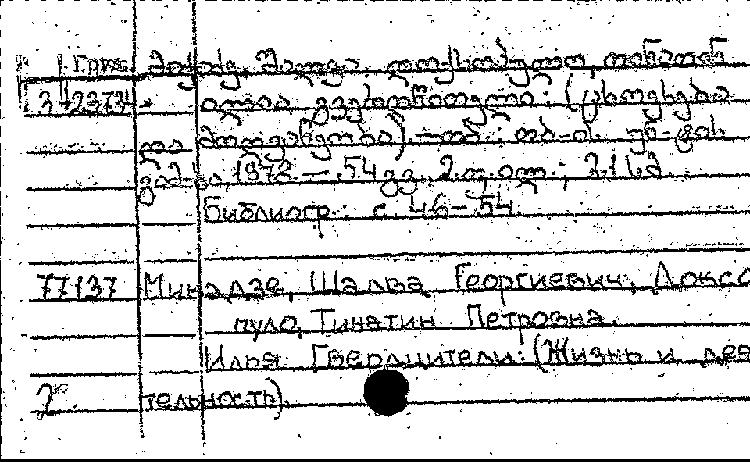 Груз. მიქაძე შალვა. დოქსოპულო, თინათინ
3-12373. ილია გვერდწითელი: (ცხოვრება
და მოღვაწეობა).—თბ.: თბ-ის უნ-ტის
გამ-ბა, 1972.—54 გვ. 2 ილ.; 21 სმ.
Библиогр.: с. 46-54.
77137 Микадзе, Шалва Георгиевич; Доксо
пуло, Тинатин Петровна.
Илья Гвердцители: (Жизнь и дея
тельность).